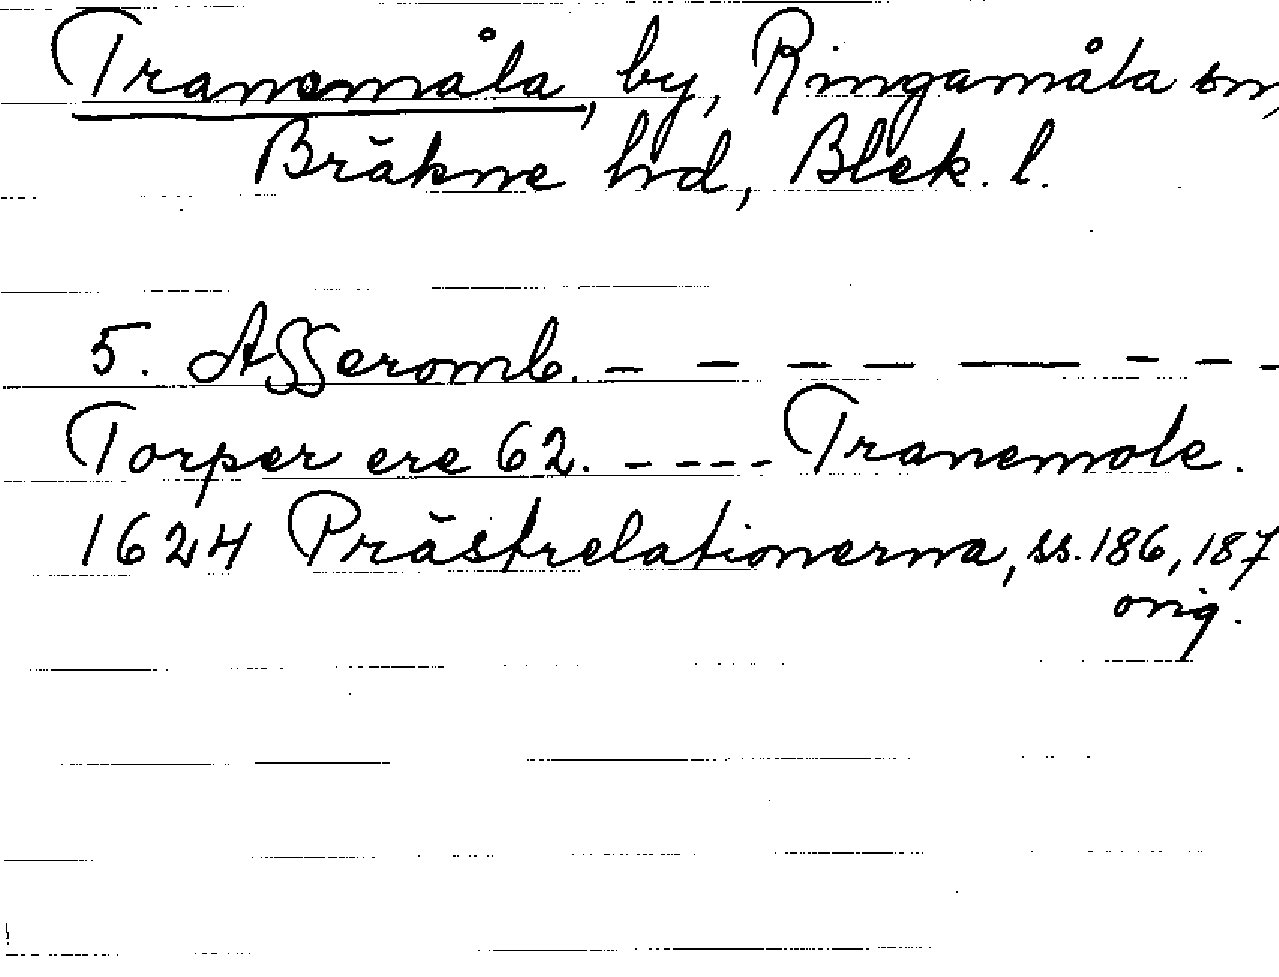 Tranemåla, by, Ringamåla sn,
Bräkne hd, Blek. l.
5. Asseromb. - - - - — - - -
Torper ere 62. - - - - Tranemole.
1624 Prästrelationerna, ss. 186, 187
orig.